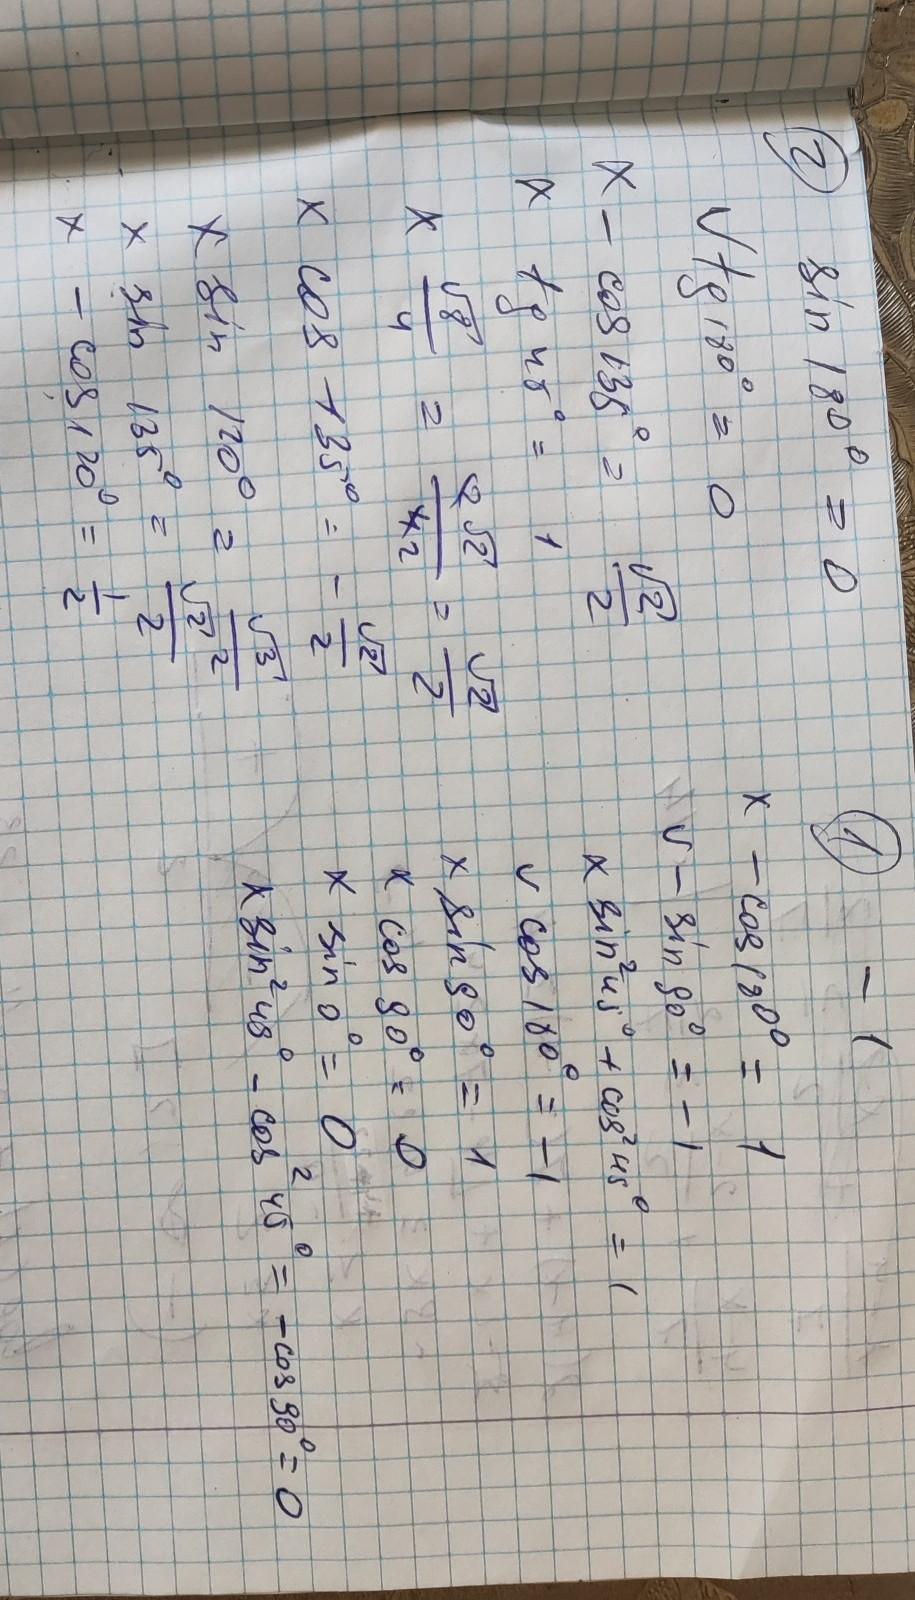 ② sin 180° = 0
√ tg 180° = 0
x - cos 135° = √2/2
x tg 45° = 1
x √8/4 = 2√2/4 2 = √2/2
x cos 135° = - √2/2
x sin 120° = √3/2
x sin 135° = √2/2
x - cos 120° = 1/2
① - 1
x - cos 180° = 1
v - sin 90° = -1
x sin² 45° + cos² 45° = 1
v cos 180° = -1
x sin 90° = 1
x cos 90° = 0
x sin 0° = 0
x sin² 45° - cos² 45° = -cos 90° = 0